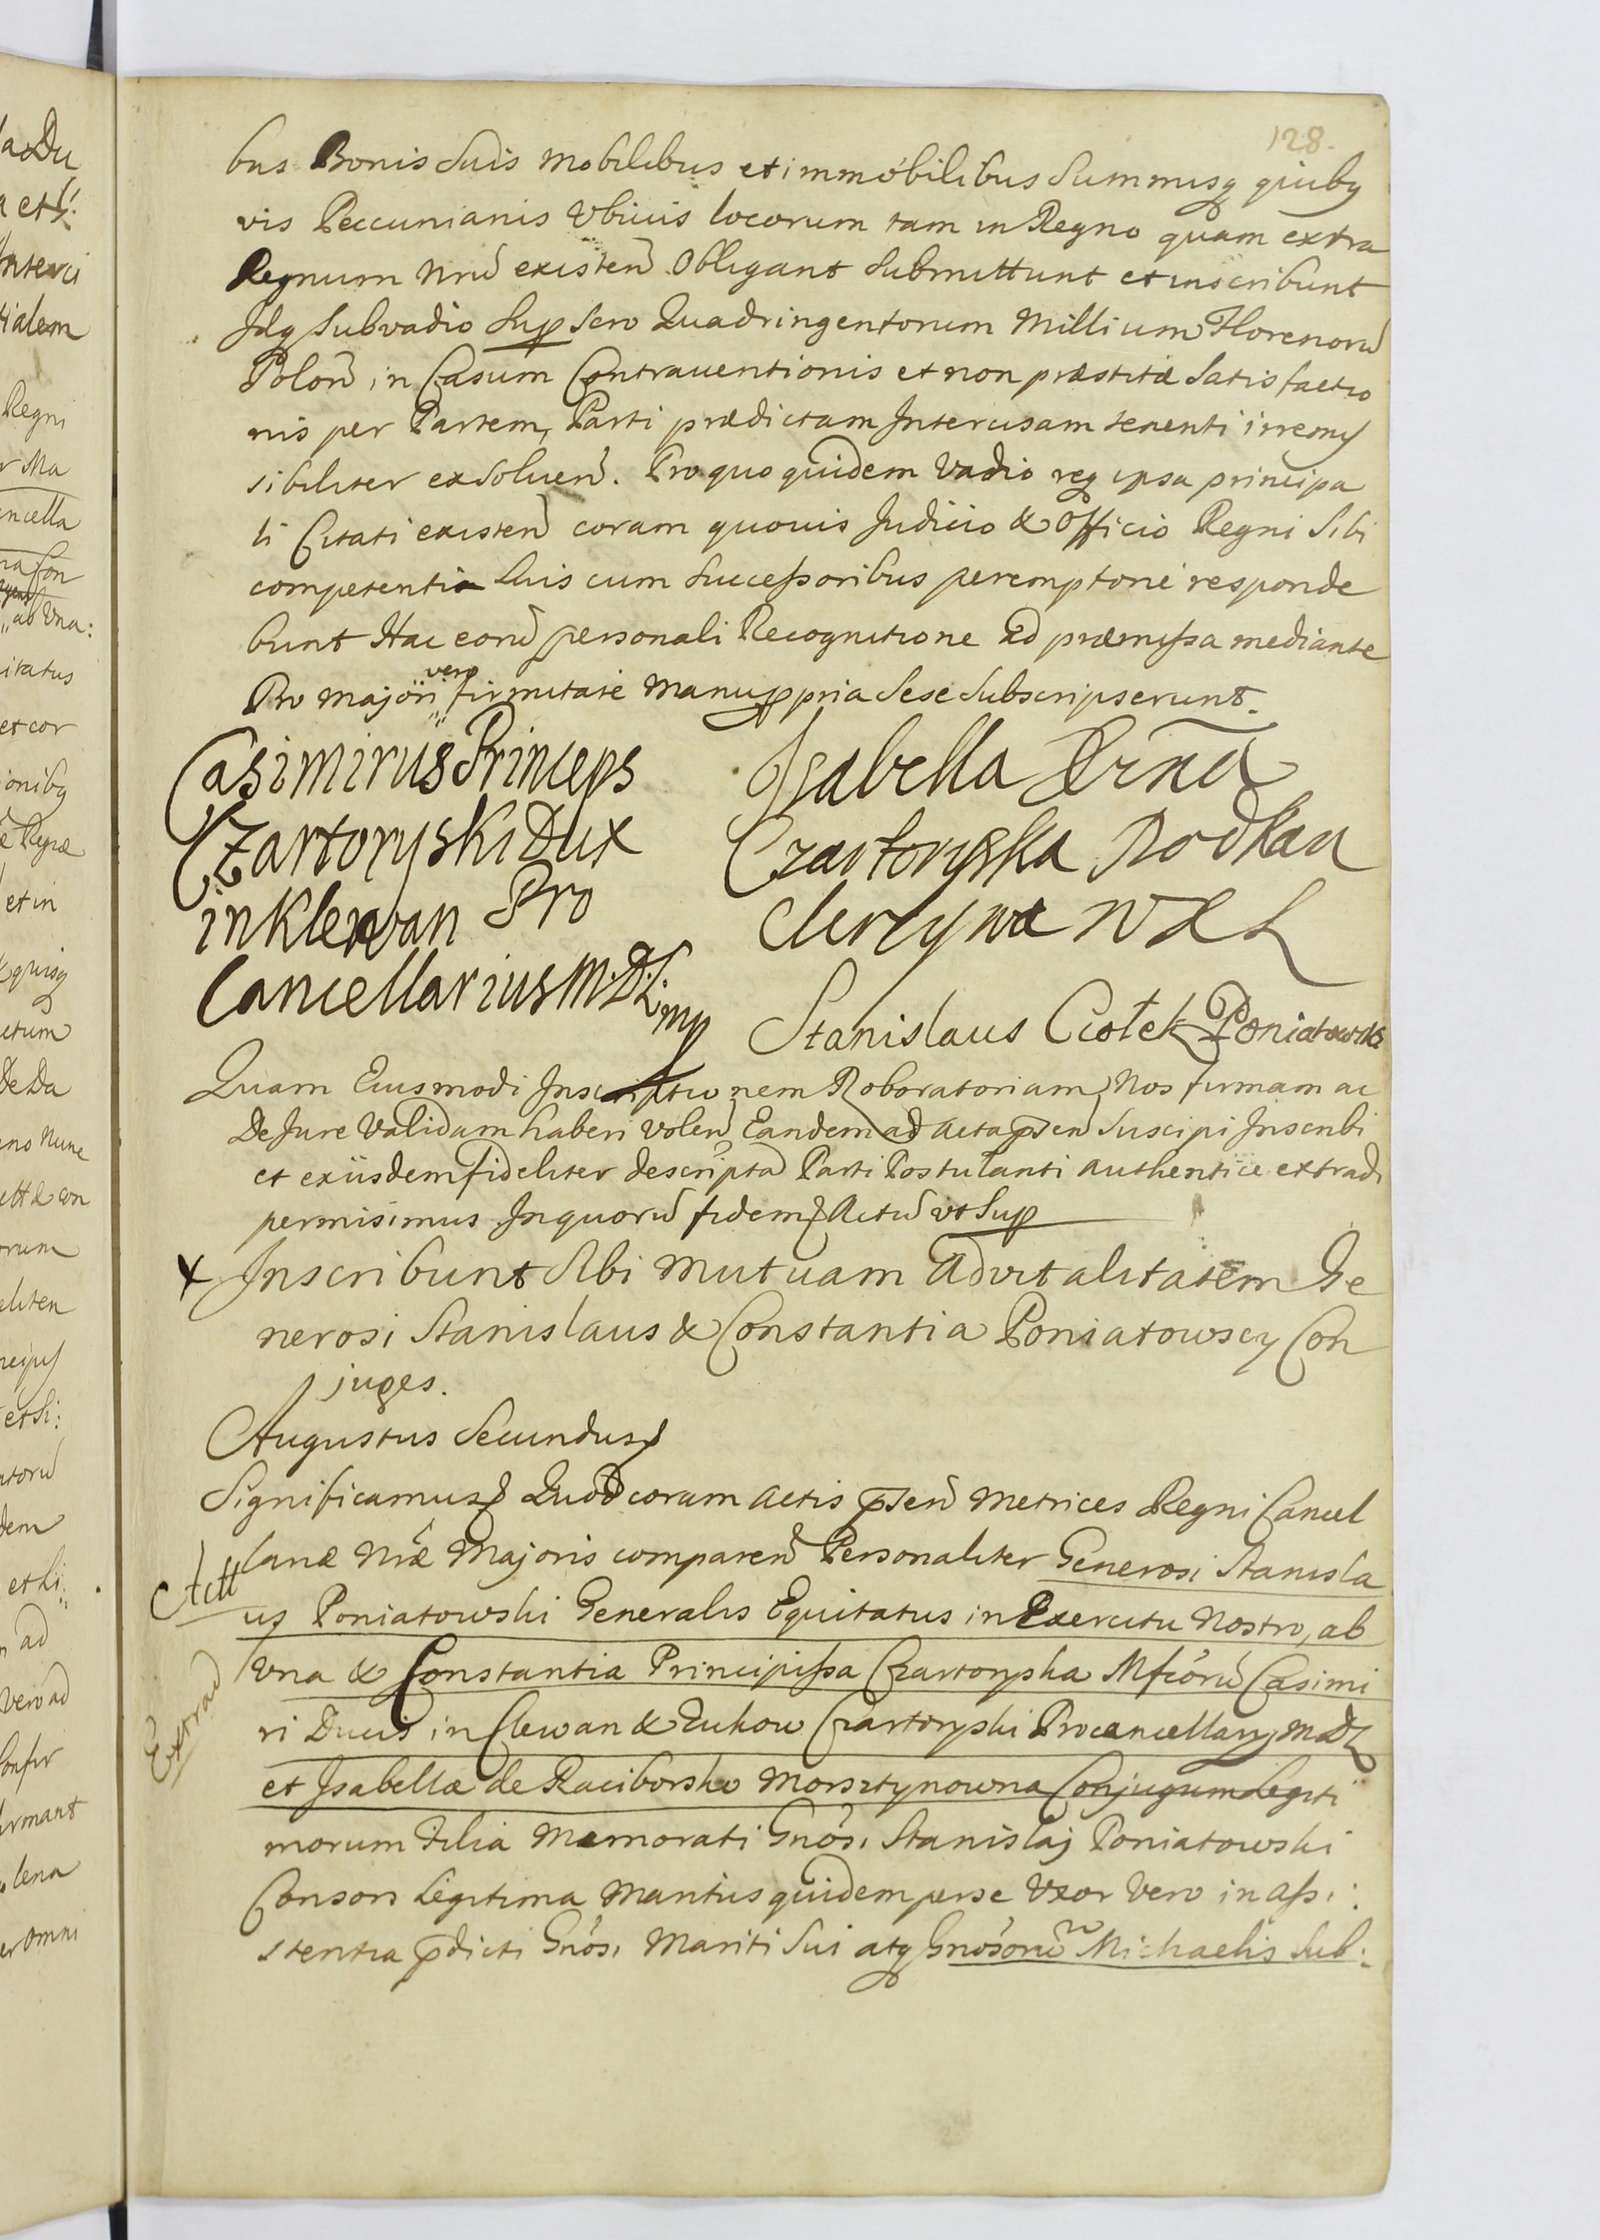 128.
bus Bonis Suis mobilibus et immobilibus Summisq quibq
vis Peccunianis Ubivis locorum tam in Regno quam extra
Regnum Nrũ existeñ Obligant Submittunt et inscribunt
Idq Subvadio Sup Sero Quadringentorum Millium Florenorũ
Poloñ in Casum Contrauentionis et non præstitæ Satisfactio
nis per Partem, Parti prædictam Intercisam tenenti irremis
sibiliter exsolueñ. Pro quo quidem Vadio req ipsa principa
li Citati existeñ coram quouis Judicio & Officio Regni Sibi
competentia Suis cum Successoribus peremptorie responde
bunt Hac eorũ personali Recognitione ad præmissa mediante
Pro majori vero firmitate manu ppria Sese Subscripserunt.
Casimirus Princeps
Czartoryski Dux
in Klewan Pro
Cancellarius M.D.L. mp
Isabella Xrna
Czartoryska Podkan
clerzyna W X L
Stanislaus Ciołek Poniatowski
Quam Eiusmodi Inscriptionem Roboratoriam Nos firmam ac
De Jure Validam haberi voleñ Eandem ad Acta pseñ Suscipi Inscribi
et exiisdem fideliter descripta Parti Postulanti authentice extradi
permisimus In quorũ fidem Actũ vt Sup
X Inscribunt Sibi mutuam Advitalitatem Ge
nerosi Stanislaus & Constantia Poniatowscy Con
juges.
Augustus Secundus
Significamus Quod coram Actis pseñ Metrices Regni Cancel
lariæ Nræ Majoris compareñ Personaliter Generosi Stanisla
Actt
us Poniatowski Generalis Equitatus in Exercitu Nostro, ab
Vna & Constantia Principissa Czartoryska Mfcorũ Casimi
Extrad
ri Ducis in Clewan & Zukow Czartoryski Procancellarij M D L
et Isabellæ de Raciborsko Morsztynowna Conjugum Legiti
morum Filia Memorati Gnosi Stanislaj Poniatowski
Consors Legitima Maritus quidem per se Vxor Vero in Assi:
stentia pdicti Gnosi Mariti Sui atq Gnosorũ Michaelis Sub: